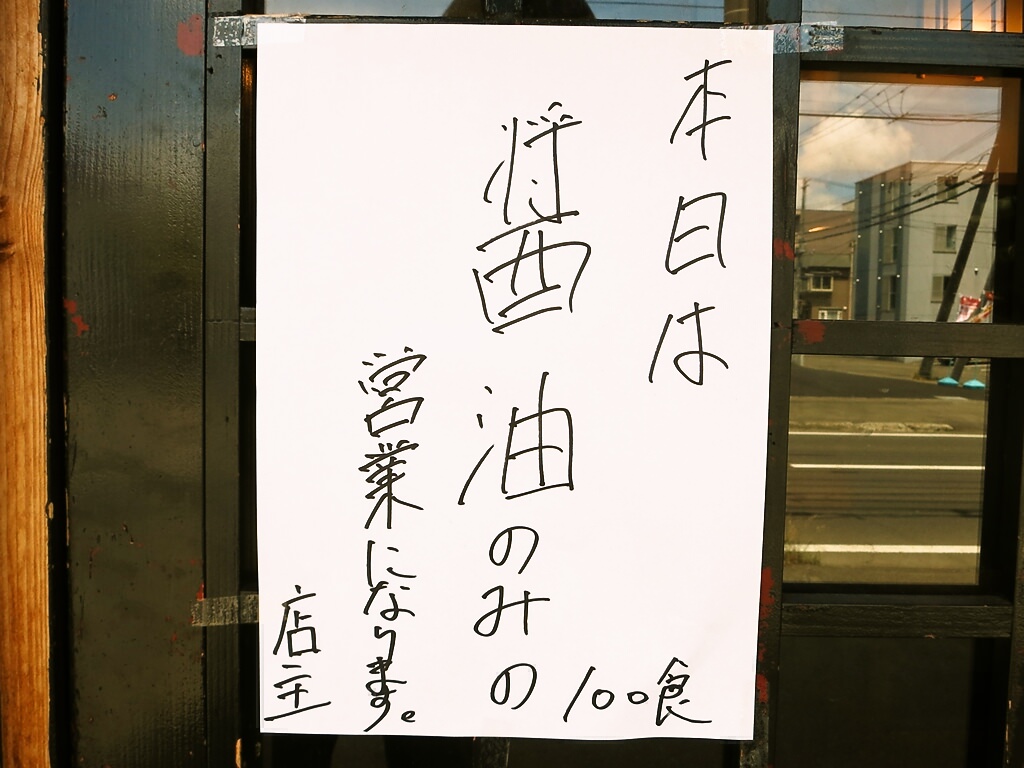 本日は
100食
醤油のみの
営業になります。
店主